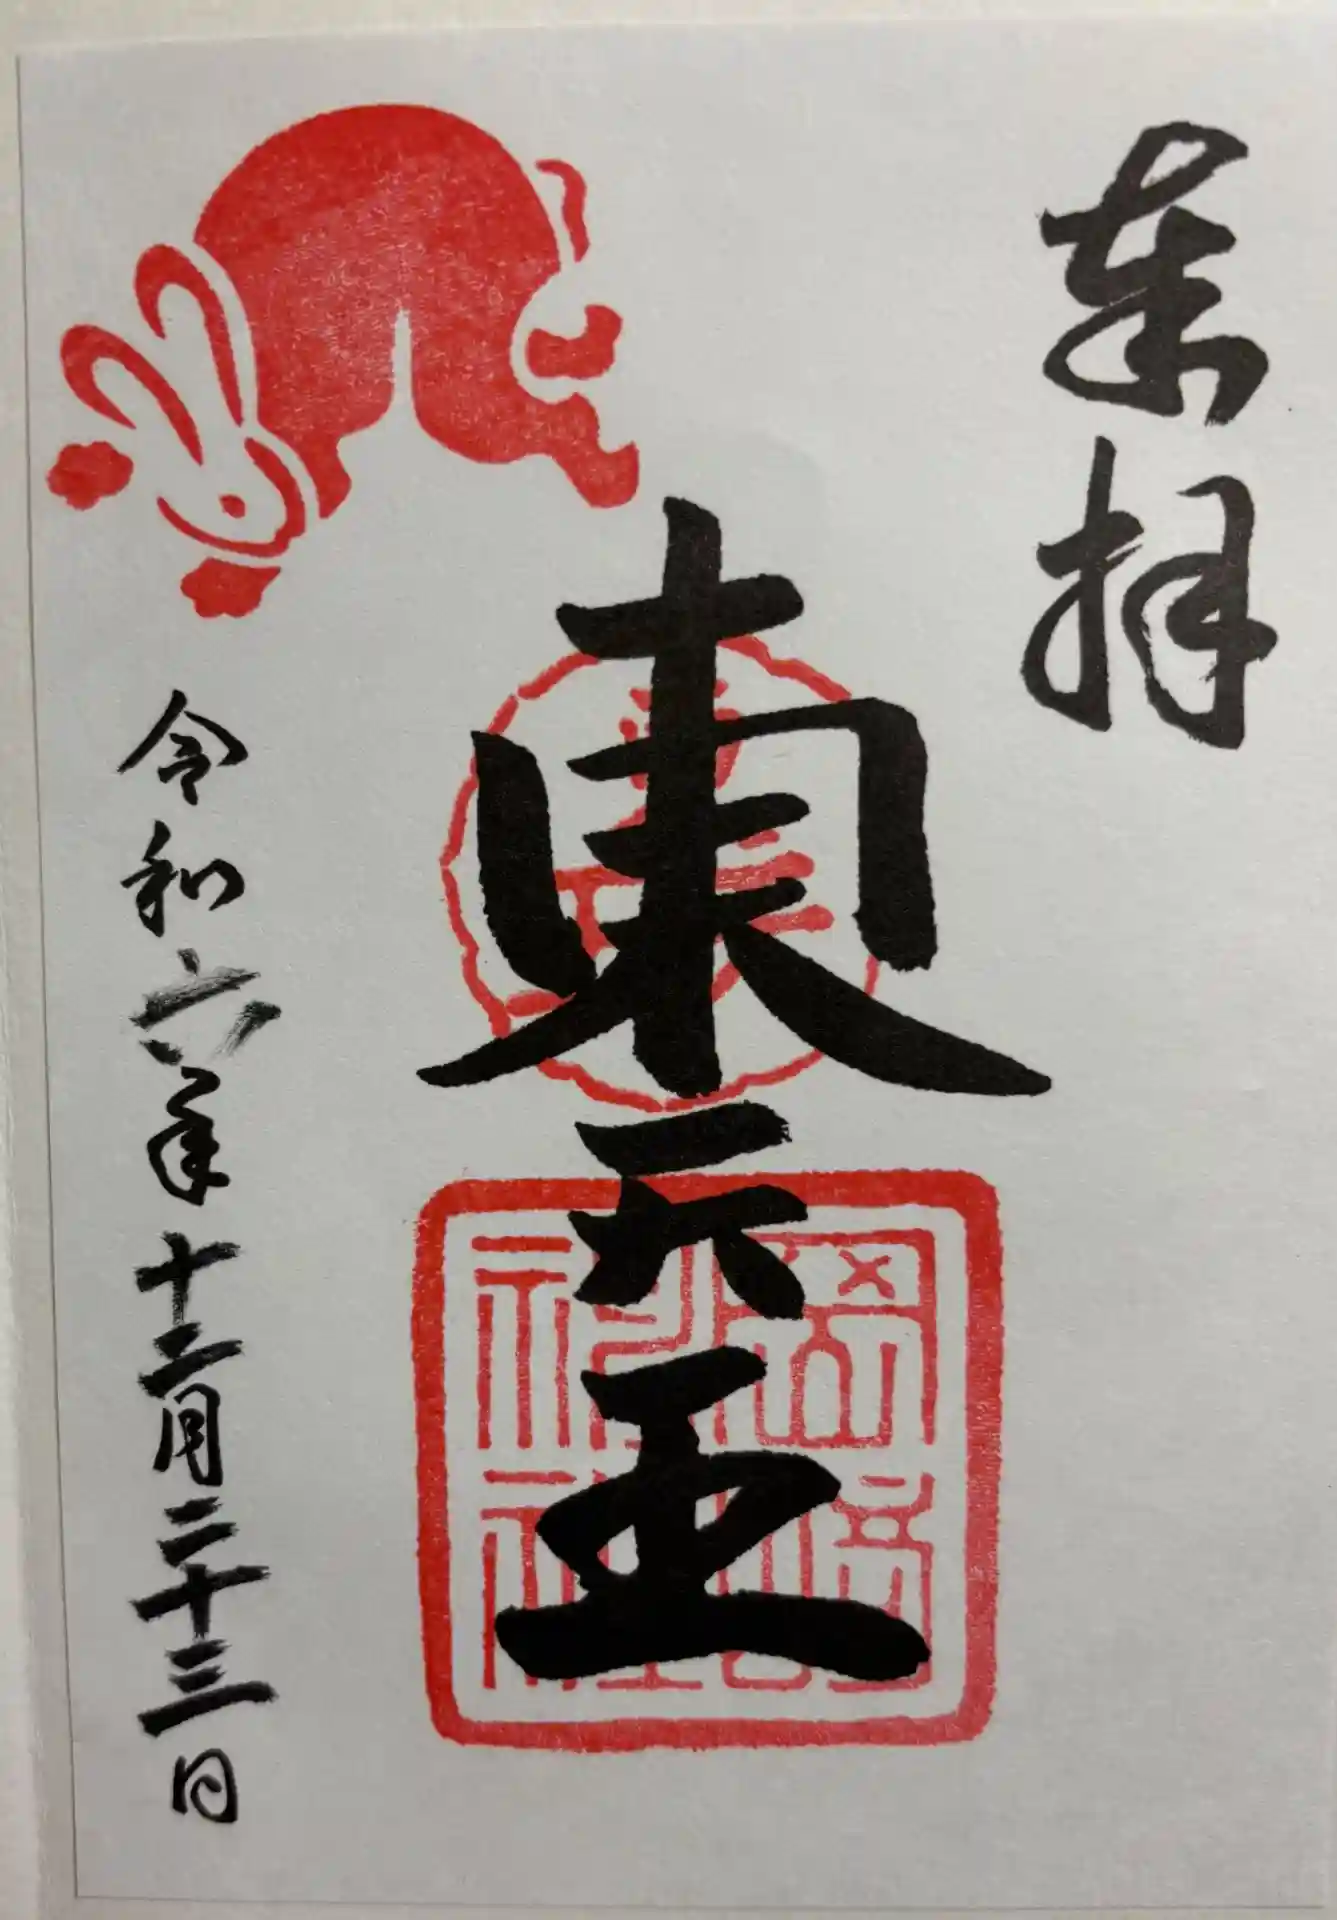 奉拝
東天王
岡崎神社
令和六年十二月二十三日